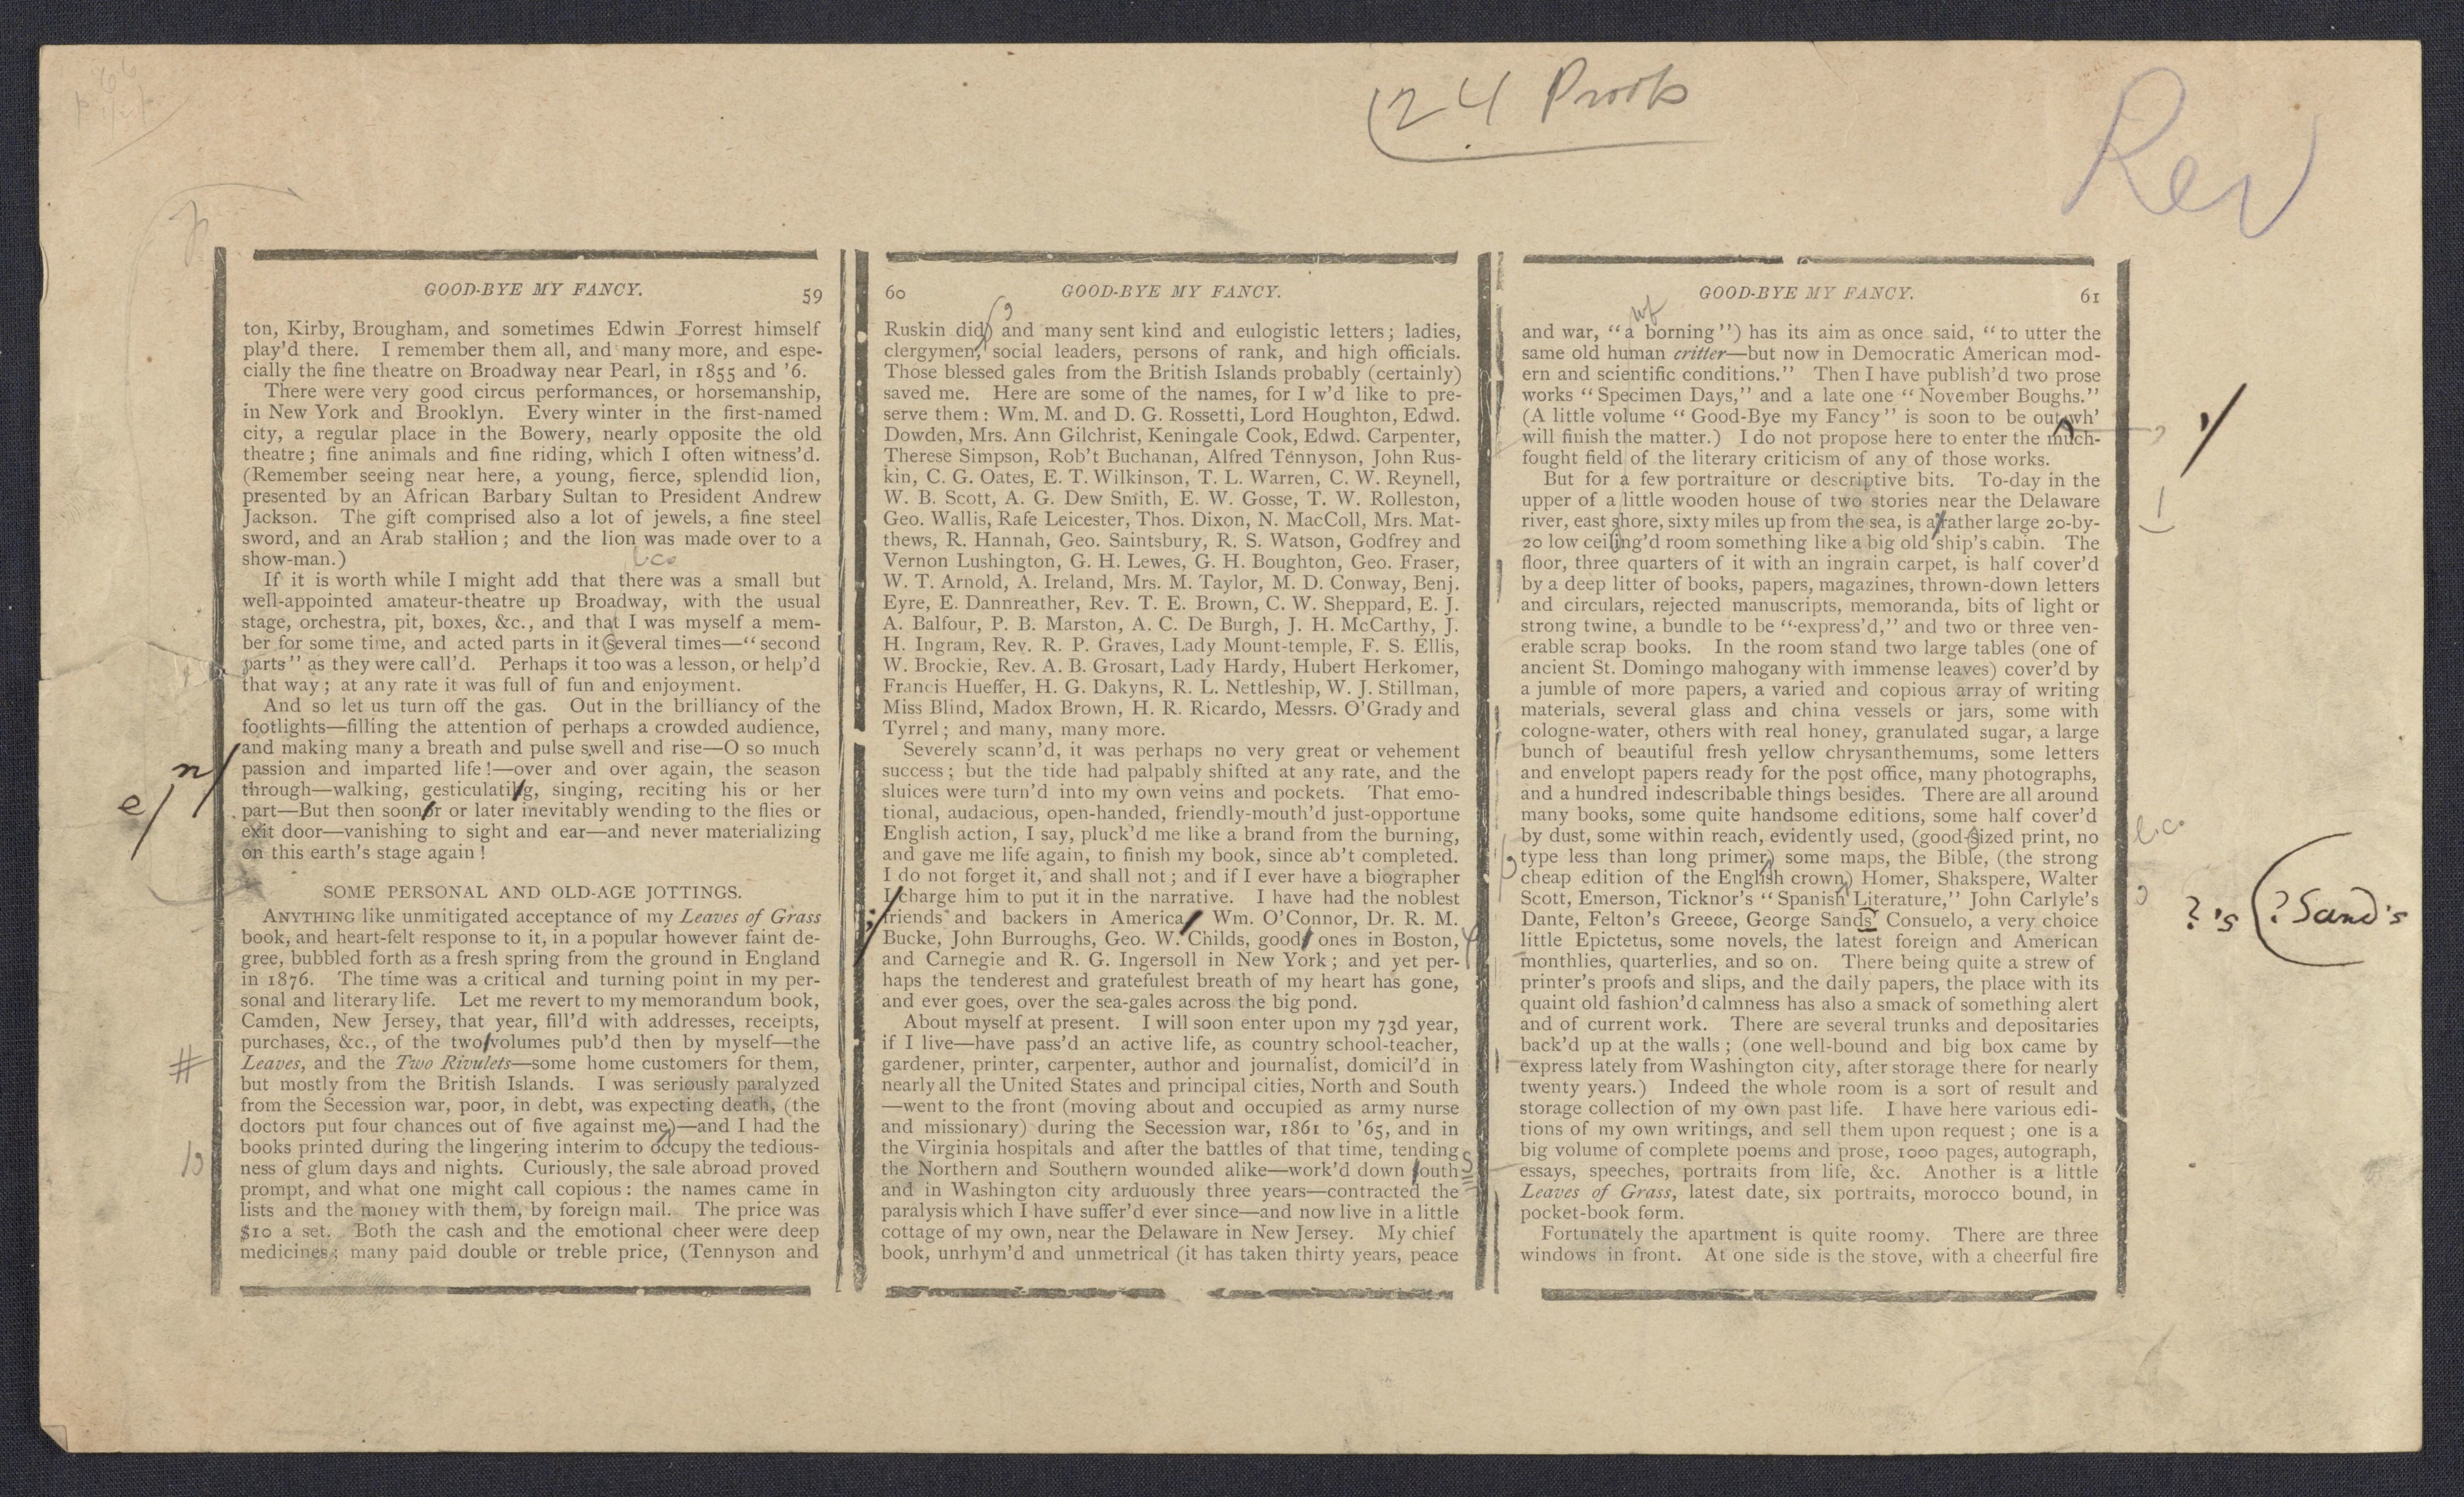 (24 Proofs
Rev
GOOD-BYE MY FANCY. 59
ton, Kirby, Brougham, and sometimes Edwin Forrest himself
play'd there. I remember them all, and many more, and espe-
cially the fine theatre on Broadway near Pearl, in 1855 and '6.
There were very good circus performances, or horsemanship,
in New York and Brooklyn. Every winter in the first-named
city, a regular place in the Bowery, nearly opposite the old
theatre; fine animals and fine riding, which I often witness'd.
(Remember seeing near here, a young, fierce, splendid lion,
presented by an African Barbary Sultan to President Andrew
Jackson. The gift comprised also a lot of jewels, a fine steel
sword, and an Arab stallion; and the lion was made over to a
show-man.)
l.c.
If it is worth while I might add that there was a small but
well-appointed amateur-theatre up Broadway, with the usual
stage, orchestra, pit, boxes, &c., and that I was myself a mem-
ber for some time, and acted parts in it several times—"second
parts" as they were call'd. Perhaps it too was a lesson, or help'd
that way; at any rate it was full of fun and enjoyment.
And so let us turn off the gas. Out in the brilliancy of the
footlights—filling the attention of perhaps a crowded audience,
and making many a breath and pulse swell and rise—O so much
n/ passion and imparted life!—over and over again, the season
through—walking, gesticulating, singing, reciting his or her
e/ part—But then sooner or later inevitably wending to the flies or
exit door—vanishing to sight and ear—and never materializing
on this earth's stage again!
SOME PERSONAL AND OLD-AGE JOTTINGS.
ANYTHING like unmitigated acceptance of my Leaves of Grass
book, and heart-felt response to it, in a popular however faint de-
gree, bubbled forth as a fresh spring from the ground in England
in 1876. The time was a critical and turning point in my per-
sonal and literary life. Let me revert to my memorandum book,
Camden, New Jersey, that year, fill'd with addresses, receipts,
purchases, &c., of the two volumes pub'd then by myself—the
# Leaves, and the Two Rivulets—some home customers for them,
but mostly from the British Islands. I was seriously paralyzed
from the Secession war, poor, in debt, was expecting death, (the
doctors put four chances out of five against me,)—and I had the
books printed during the lingering interim to occupy the tedious-
ness of glum days and nights. Curiously, the sale abroad proved
prompt, and what one might call copious: the names came in
lists and the money with them, by foreign mail. The price was
$10 a set. Both the cash and the emotional cheer were deep
medicines; many paid double or treble price, (Tennyson and
60 GOOD-BYE MY FANCY.
Ruskin did,) and many sent kind and eulogistic letters; ladies,
clergymen, social leaders, persons of rank, and high officials.
Those blessed gales from the British Islands probably (certainly)
saved me. Here are some of the names, for I w'd like to pre-
serve them: Wm. M. and D. G. Rossetti, Lord Houghton, Edwd.
Dowden, Mrs. Ann Gilchrist, Keningale Cook, Edwd. Carpenter,
Therese Simpson, Rob't Buchanan, Alfred Tennyson, John Rus-
kin, C. G. Oates, E. T. Wilkinson, T. L. Warren, C. W. Reynell,
W. B. Scott, A. G. Dew Smith, E. W. Gosse, T. W. Rolleston,
Geo. Wallis, Rafe Leicester, Thos. Dixon, N. MacColl, Mrs. Mat-
thews, R. Hannah, Geo. Saintsbury, R. S. Watson, Godfrey and
Vernon Lushington, G. H. Lewes, G. H. Boughton, Geo. Fraser,
W. T. Arnold, A. Ireland, Mrs. M. Taylor, M. D. Conway, Benj.
Eyre, E. Dannreather, Rev. T. E. Brown, C. W. Sheppard, E. J.
A. Balfour, P. B. Marston, A. C. De Burgh, J. H. McCarthy, J.
H. Ingram, Rev. R. P. Graves, Lady Mount-temple, F. S. Ellis,
W. Brockie, Rev. A. B. Grosart, Lady Hardy, Hubert Herkomer,
Francis Hueffer, H. G. Dakyns, R. L. Nettleship, W. J. Stillman,
Miss Blind, Madox Brown, H. R. Ricardo, Messrs. O'Grady and
Tyrrel; and many, many more.
Severely scann'd, it was perhaps no very great or vehement
success; but the tide had palpably shifted at any rate, and the
sluices were turn'd into my own veins and pockets. That emo-
tional, audacious, open-handed, friendly-mouth'd just-opportune
English action, I say, pluck'd me like a brand from the burning,
and gave me life again, to finish my book, since ab't completed.
I do not forget it, and shall not; and if I ever have a biographer
I charge him to put it in the narrative. I have had the noblest
;/ friends and backers in America Wm. O'Connor, Dr. R. M.
Bucke, John Burroughs, Geo. W. Childs, good ones in Boston,
and Carnegie and R. G. Ingersoll in New York; and yet per-
haps the tenderest and gratefulest breath of my heart has gone,
and ever goes, over the sea-gales across the big pond.
About myself at present. I will soon enter upon my 73d year,
if I live—have pass'd an active life, as country school-teacher,
gardener, printer, carpenter, author and journalist, domicil'd in
nearly all the United States and principal cities, North and South
—went to the front (moving about and occupied as army nurse
and missionary) during the Secession war, 1861 to '65, and in
the Virginia hospitals and after the battles of that time, tending
the Northern and Southern wounded alike—work'd down south S
and in Washington city arduously three years—contracted the
paralysis which I have suffer'd ever since—and now live in a little
cottage of my own, near the Delaware in New Jersey. My chief
book, unrhym'd and unmetrical (it has taken thirty years, peace
GOOD-BYE MY FANCY. 61
wf
and war, "a borning") has its aim as once said, "to utter the
same old human critter—but now in Democratic American mod-
ern and scientific conditions." Then I have publish'd two prose
works "Specimen Days," and a late one "November Boughs."
(A little volume "Good-Bye my Fancy" is soon to be out wh' ,/
will finish the matter.) I do not propose here to enter the much-
fought field of the literary criticism of any of those works.
But for a few portraiture or descriptive bits. To-day in the
upper of a little wooden house of two stories near the Delaware
river, east shore, sixty miles up from the sea, is a rather large 20-by-
20 low ceiling'd room something like a big old ship's cabin. The
floor, three quarters of it with an ingrain carpet, is half cover'd
by a deep litter of books, papers, magazines, thrown-down letters
and circulars, rejected manuscripts, memoranda, bits of light or
strong twine, a bundle to be "express'd," and two or three ven-
erable scrap books. In the room stand two large tables (one of
ancient St. Domingo mahogany with immense leaves) cover'd by
a jumble of more papers, a varied and copious array of writing
materials, several glass and china vessels or jars, some with
cologne-water, others with real honey, granulated sugar, a large
bunch of beautiful fresh yellow chrysanthemums, some letters
and envelopt papers ready for the post office, many photographs,
and a hundred indescribable things besides. There are all around
many books, some quite handsome editions, some half cover'd
by dust, some within reach, evidently used, (good-sized print, no l.c.
type less than long primer,) some maps, the Bible, (the strong
cheap edition of the English crown,) Homer, Shakspere, Walter
Scott, Emerson, Ticknor's "Spanish Literature," John Carlyle's
Dante, Felton's Greece, George Sands' Consuelo, a very choice ? 's (? Sand's
little Epictetus, some novels, the latest foreign and American
monthlies, quarterlies, and so on. There being quite a strew of
printer's proofs and slips, and the daily papers, the place with its
quaint old fashion'd calmness has also a smack of something alert
and of current work. There are several trunks and depositaries
back'd up at the walls; (one well-bound and big box came by
express lately from Washington city, after storage there for nearly
twenty years.) Indeed the whole room is a sort of result and
storage collection of my own past life. I have here various edi-
tions of my own writings, and sell them upon request; one is a
big volume of complete poems and prose, 1000 pages, autograph,
essays, speeches, portraits from life, &c. Another is a little
Leaves of Grass, latest date, six portraits, morocco bound, in
pocket-book form.
Fortunately the apartment is quite roomy. There are three
windows in front. At one side is the stove, with a cheerful fire